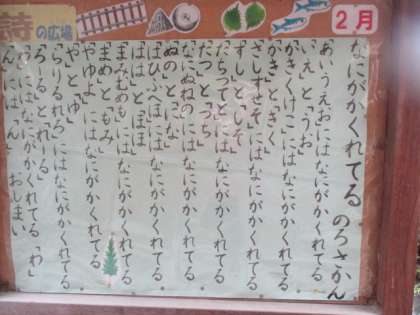 詩の広場
2月
なにがかくれてる のろさかん
あいうえおにはなにがかくれてる
「いえ」と「うお」
かきくけこにはなにがかくれてる
「かき」と「きく」
さしすせそにはなにがかくれてる
「すし」と「しそ」
たちつてとにはなにがかくれてる
「たつ」と「つち」
なにぬねのにはなにがかくれてる
「ぬの」と「にな」
はひふへほにはなにがかくれてる
「はは」と「ほほ」
まみむめもにはなにがかくれてる
「まめ」と「もみ」
やゆよにはなにがかくれてる
「や」と「ゆ」
らりるれろにはなにがかくれてる
わにはなにがかくれてる「わ」
んには「ん」 おしまい